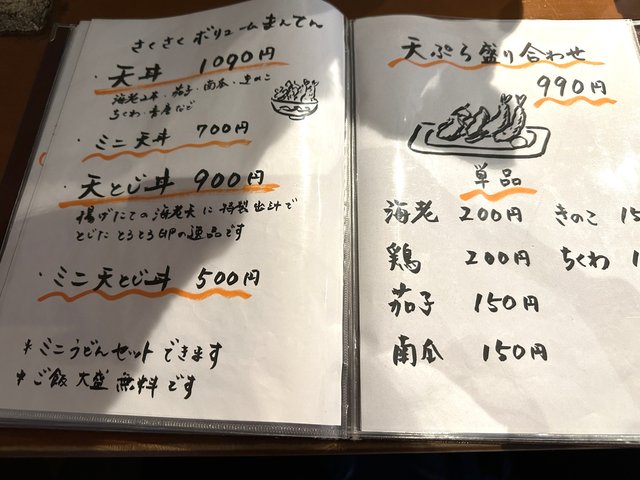 さくさく ボリュームまんてん
・天丼 1090円
海老2本・茄子・南瓜・きのこ
ちくわ・青唐など
・ミニ天丼 700円
・天とじ丼 900円
揚げたての海老天に特製出汁で
とじた とろとろ卵の逸品です
・ミニ天とじ丼 500円
*ミニうどんセットできます
*ご飯大盛無料です
天ぷら盛り合わせ
990円
単品
海老 200円 きのこ 15
鶏 200円 ちくわ 1
茄子 150円
南瓜 150円